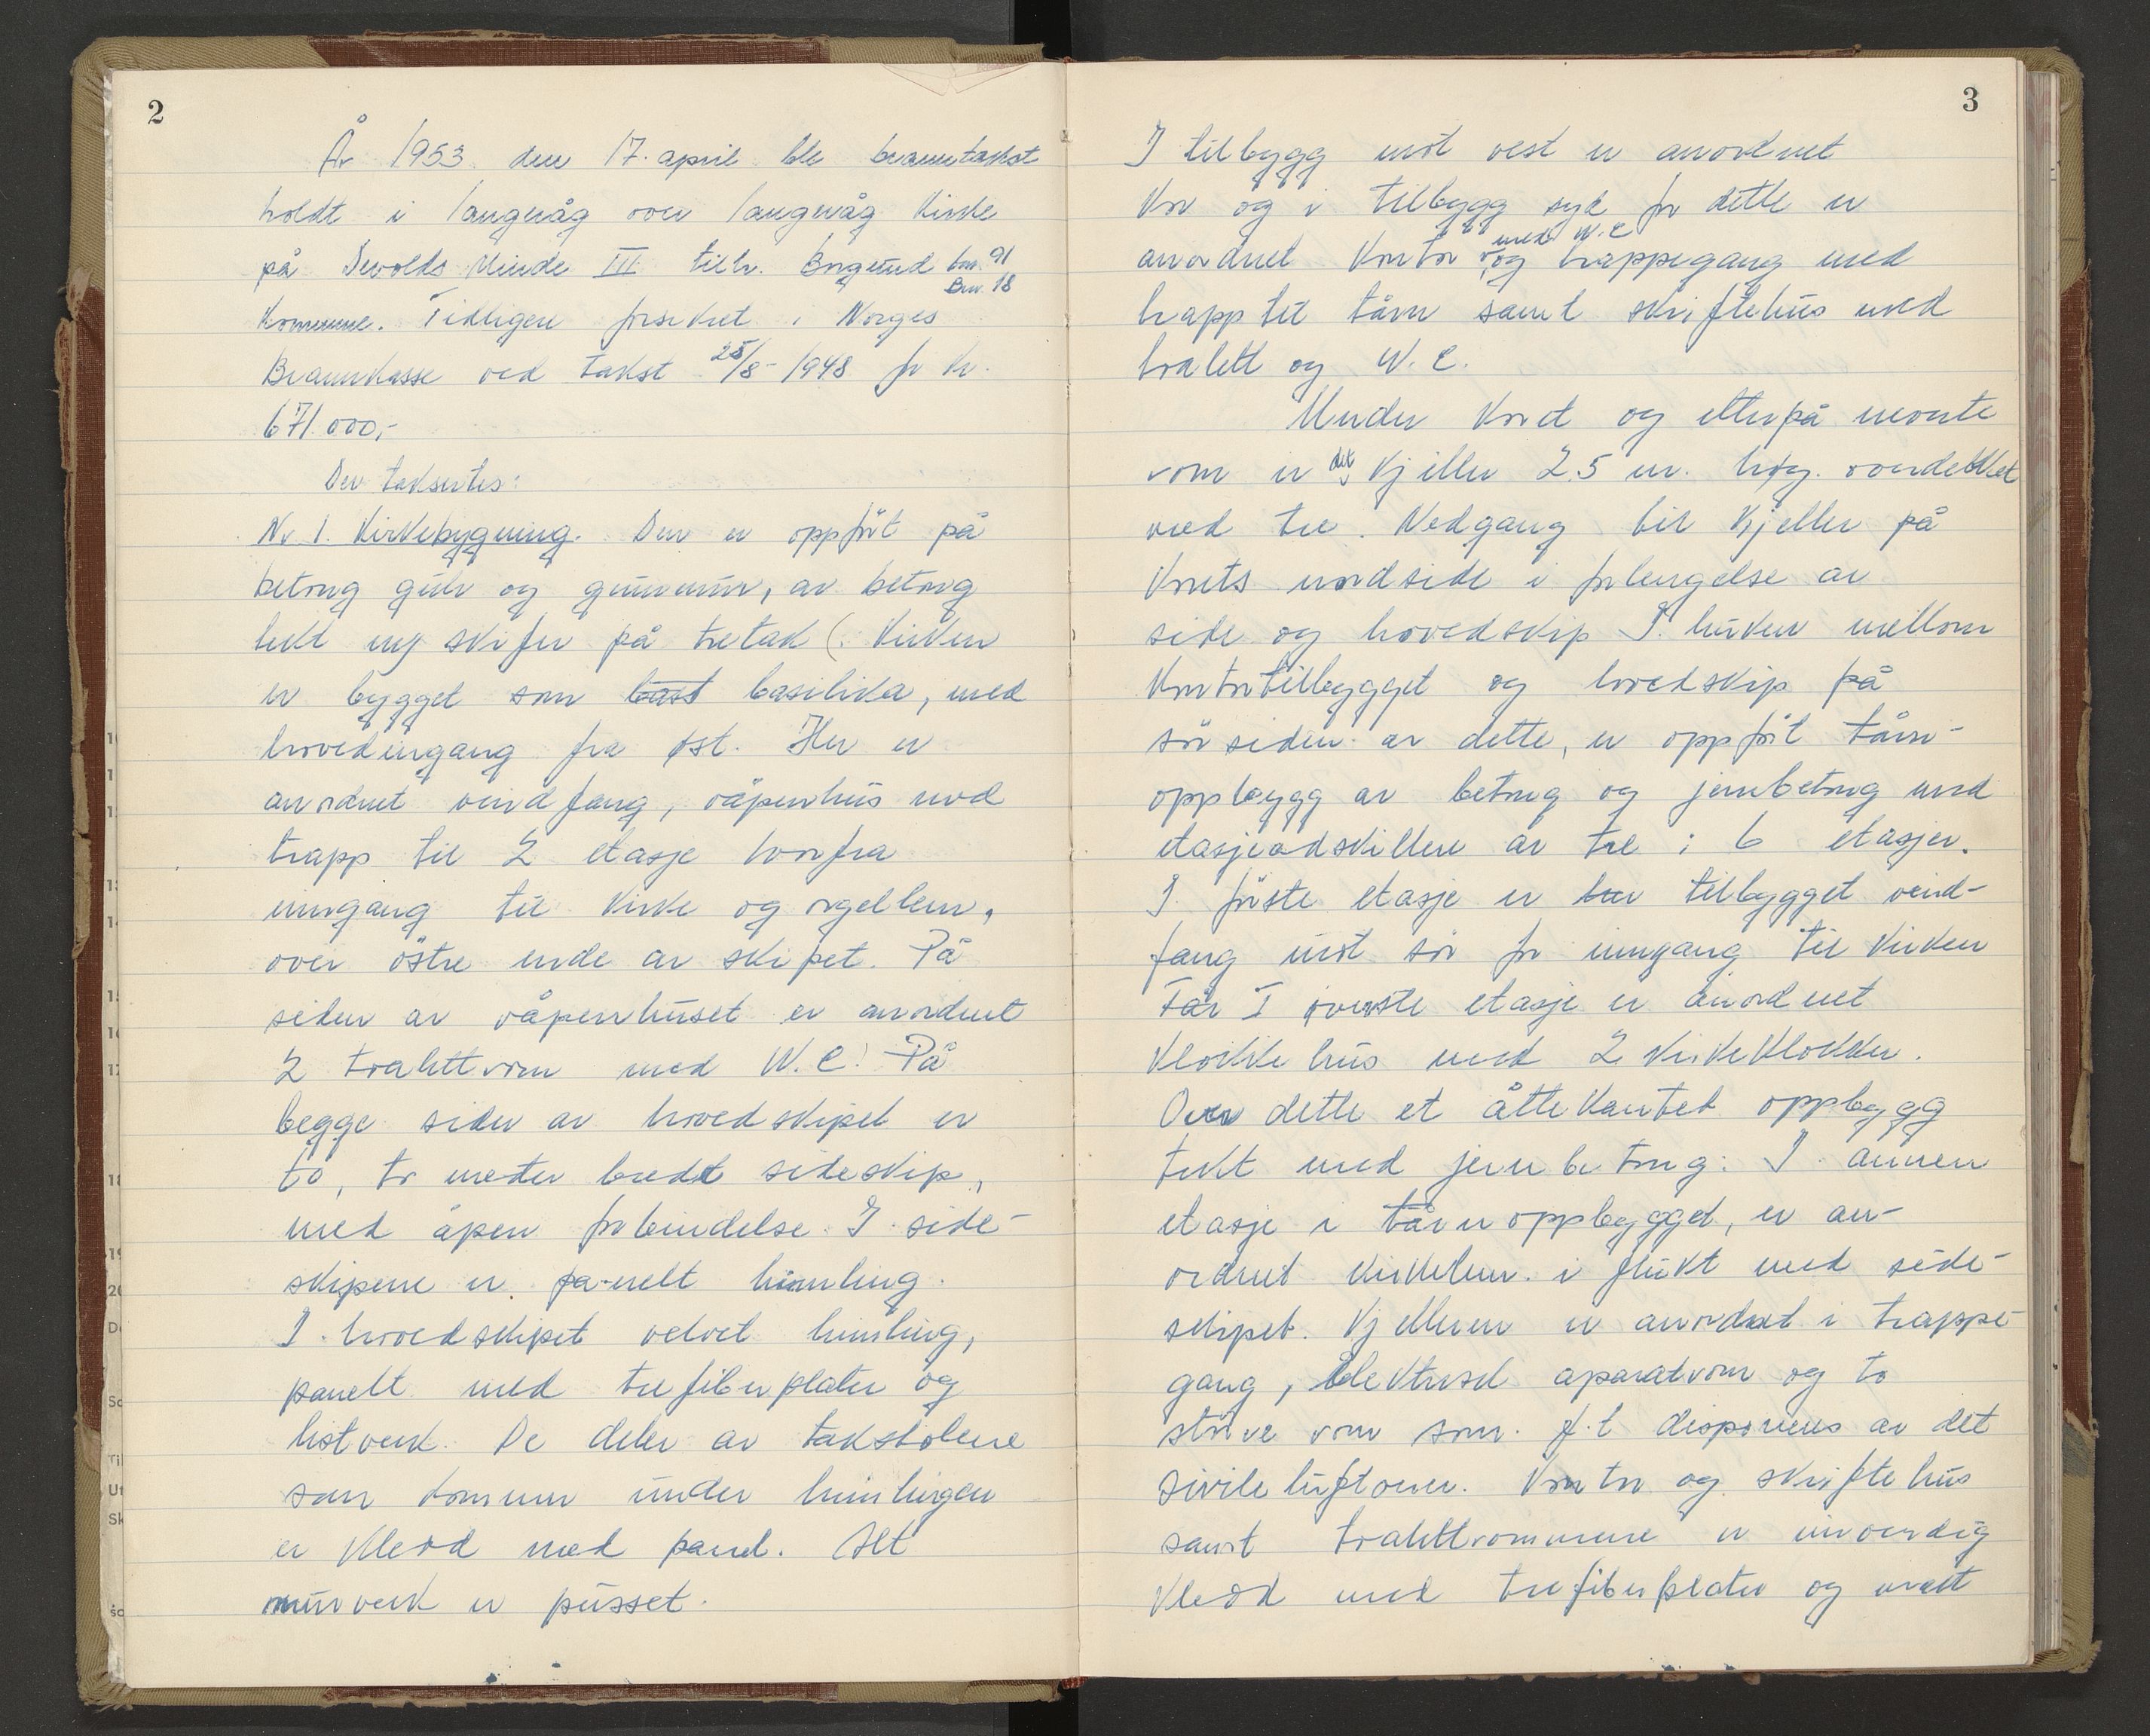 2
År 1953 den 17. april ble branntakst
holdt i Langevåg over Langevåg Kirke
på Devolds Minde III tilh. Borgund bnr. 91
Brn. 18
Kommune. Tidligere forsikret i Norges
Brannkasse ved takst 25/8-1948 for kr.
671.000,-
Der taksertes:
Nr 1. Kirkebygning. Den er oppført på
betong gulv og grunnmur, av betong
tekt m/ skifer på tretak (. Kirken
er bygget som bast basilika, med
hovedinngang fra øst. Her er
anordnet vindfang, våpenhus med
trapp til 2 etasje hvorfra
inngang til Kirke og orgellem,
over östre ende av skipet. På
siden av våpenhuset er anordnet
2 toalettrom med W.C. På
begge sider av hovedskipet er
to, to meter bredt sideskip,
med åpen forbindelse. I side-
skipene er panelt himling.
I hovedskipet velvet himling,
panelt med trefiberplater og
listverk. De deler av takstolene
som kommer under himlingen
er kledd med panel. Alt
murverk er pusset.
3
I tilbygg mot vest er anordnet
Kor og i tilbygg syd for dette er
med W.C
anordnet Kontor og trappegang med
trapp til tårn samt skriftehus med
toalett og W.C.
Under Koret og etterpå
rom er det Kjeller 2.5 m. høg. overdekket
med tre. Nedgang til Kjeller på
Korets nordside i forlengelse av
side og hovedskip I. kroken mellom
Kontortilbygget og hovedskip på
sörsiden av dette, er oppfört tårn-
oppbygg av betong og jernbetong med
etasjeadskillere av tre i 6 etasjer.
I förste etasje er tilbygget vind-
fang mot sör for inngang til Kirken
I øverste etasje er anordnet
Klokkehus med 2 Kirkeklokker.
Over dette et åttekantet oppbygg
tekt med jernbetong. I annen
etasje i tårnoppbygget, er an-
ordnet i flukt med side-
skipet. Kjelleren er anordnet i trappe-
gang, Elektrisk aparatrom og to
större rom som f.t disponeres av det
sivile luftvern. Kontor og skriftehus
samt toalettrommene er innvendig
Kledd med trefiberplater og malt